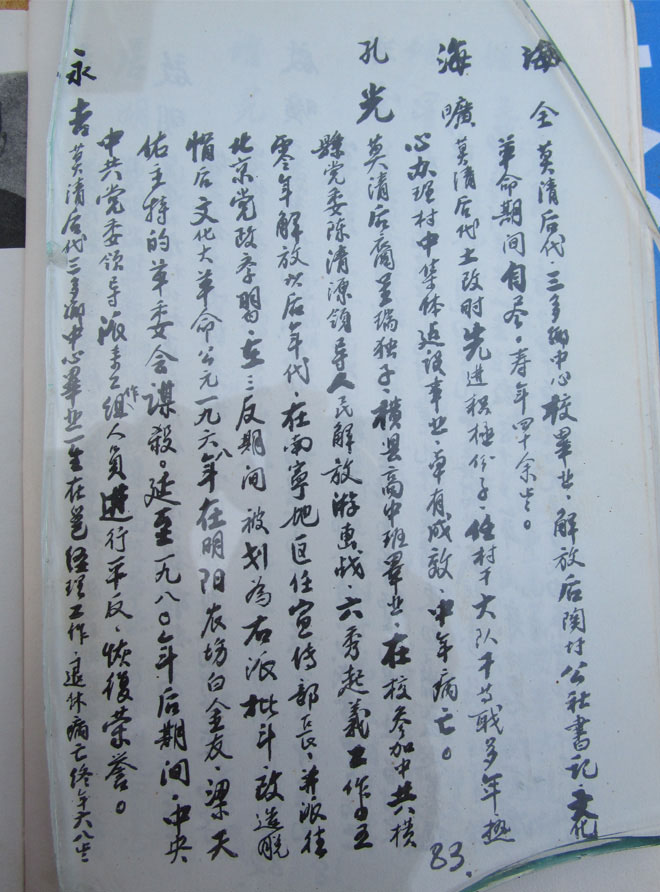 海全 莫清后代．三多乡中心校畢业．解放后陶圩公社書記 文化
革命期间自尽。寿年四十余岁。
海曠 莫清后代土改时先进积极份子．任村干大队干等职多年热
心办理村中集体建设事业．卓有成效．中年病亡。
孔光 莫清后裔 瑞独子．横县高中班畢业．在校参加中共横
縣党委陈清源领导人民解放游击战．六秀起義工作。五
零年解放以后年代．在南宁地区任宣传部长．并派往
北京党政学習．在三反期间被划為右派批斗改造脱
帽后文化大革命公元一九六八年在明阳农场白金友．梁天
佑主持的革委会谋殺。延至一九八〇年后期间．中央
中共党委领导派来工作组人員进行平反．恢復荣誉。
永吉 莫清后代三多乡中心畢业一生在邕经理工作．退休病亡终年六八岁
83.